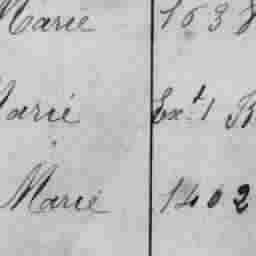 Marie 163
Marie Ext 1
Marie 1402